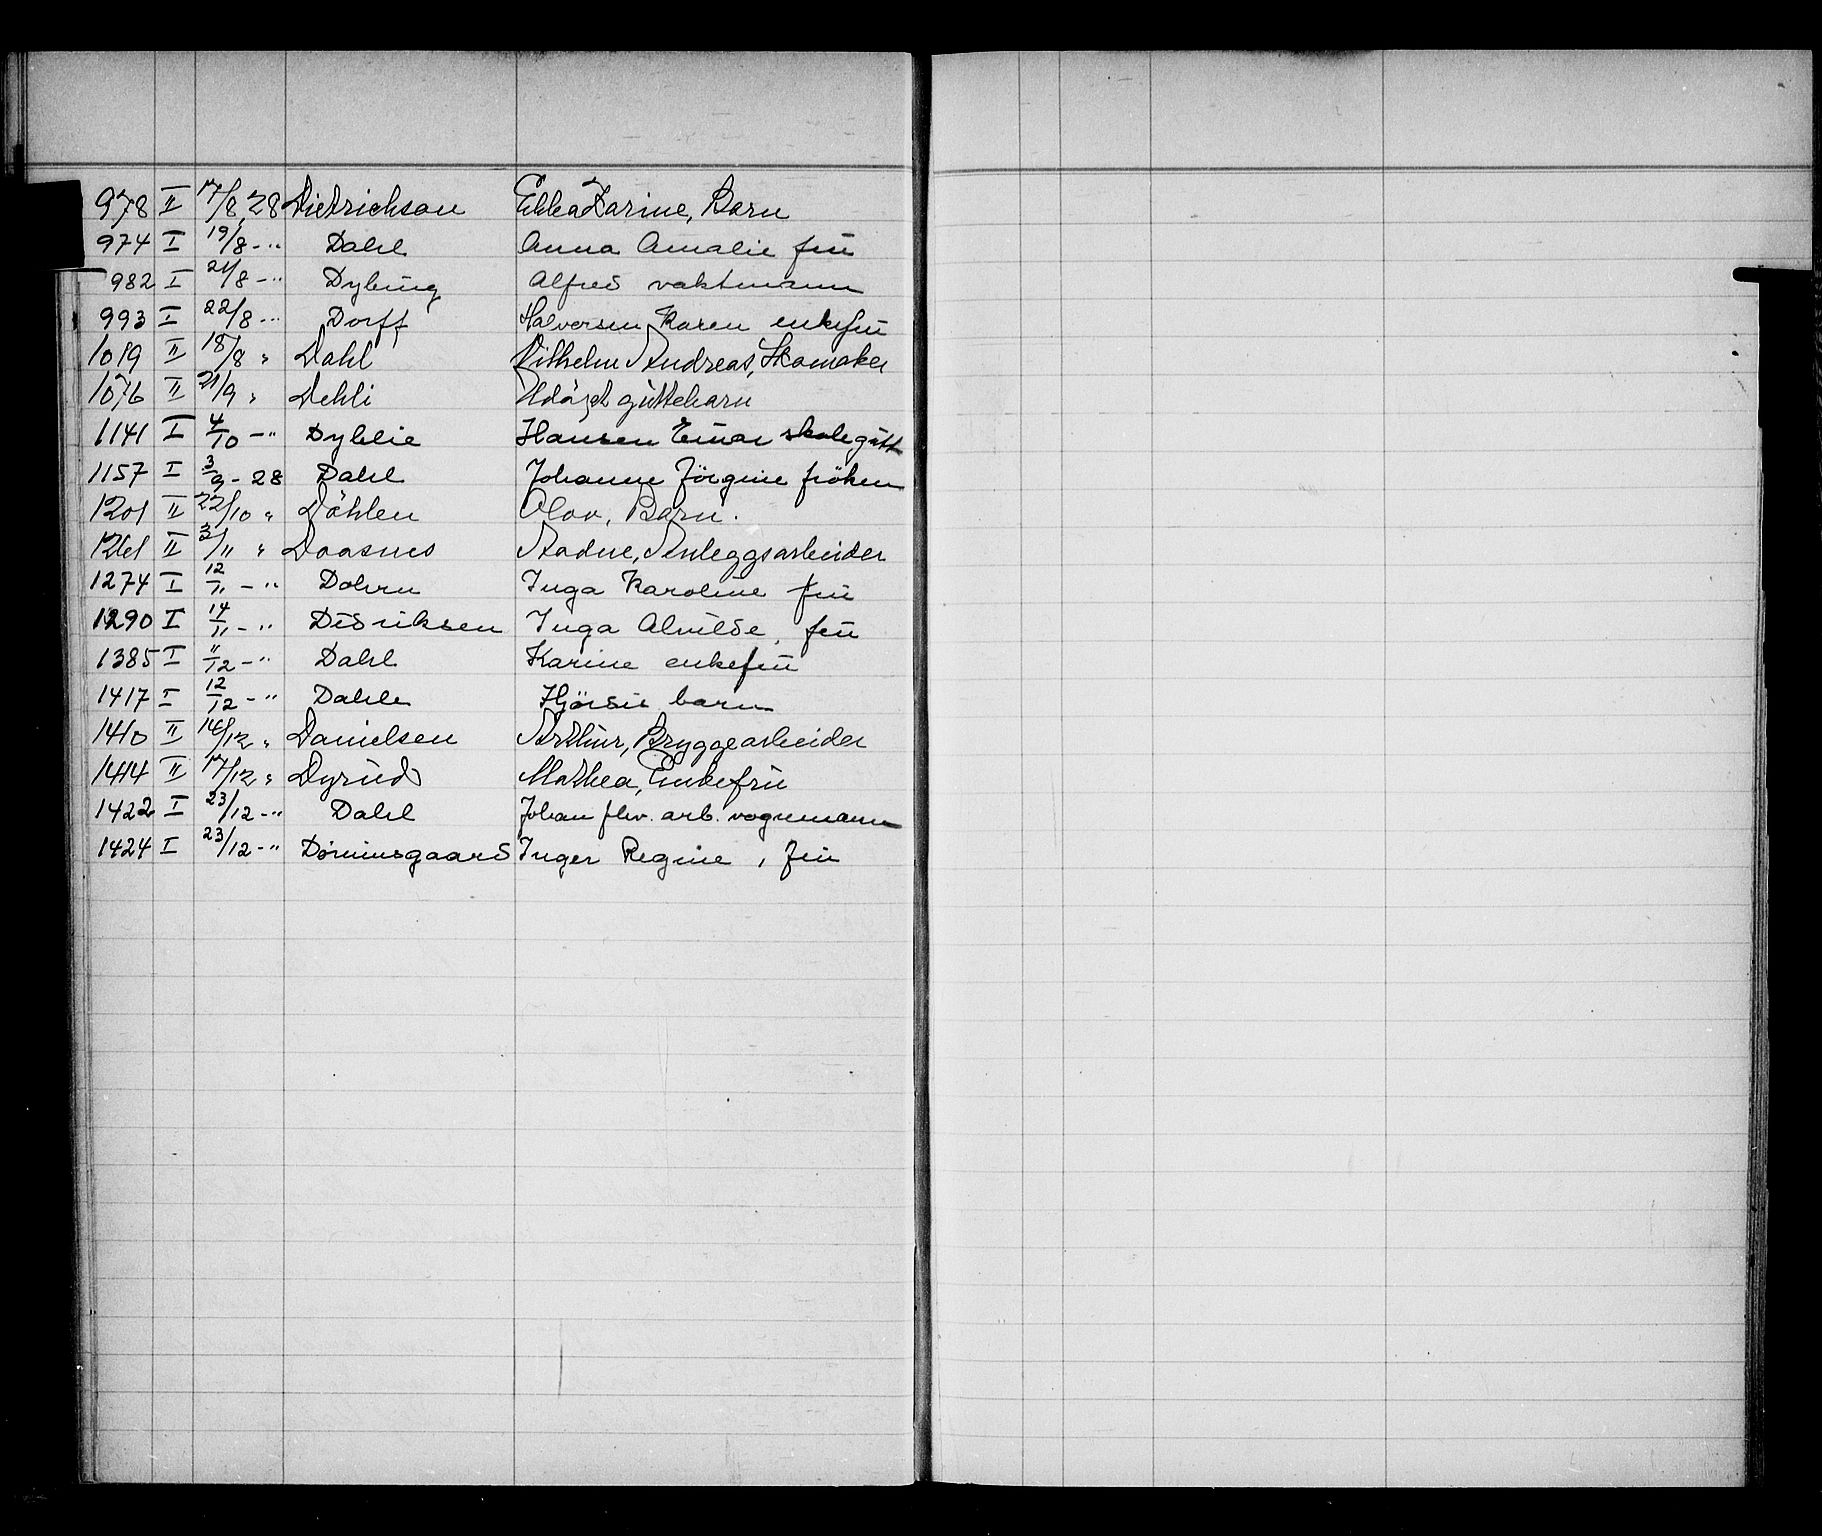 978 II 17/8 28 Dietrichson Ebba Karine, Barn
974 I 19/8 - " Dahl Anna Amalie frü
982 I 21/8 - " Dybing Alfred vaktmann
993 I 22/8 - " Dorff Halvorsen Karen enkefrü
1019 II 18/8 " Dahl Vilhelm Andreas, Skomaker
1076 II 21/9 " Dehli Udöpt güttebarn
1141 I 4/10 - " Dyblie Hansen Einar skolegütt
1157 I 3/9 - 28 Dahl Johanne Jörgine fröken
1201 II 22/10 " Döhlen Olov, Barn.
1261 II 3/11 " Daasnes Aadne, Anleggsarbeider
1274 I 12/11 - " Dohrn Inga Karoline frü
1290 I 14/11 - " Didriksen Inga Alvilde, frü
1385 I 11/12 - " Dahl Karine enkefrü
1417 I 12/12 - " Dahle Hjördis barn
1410 II 16/12 " Danielsen Arthur, Bryggearbeider
1414 II 17/12 " Dyrüd Mathea, Enkefrü
1422 I 23/12 - " Dahl Johan fhv. arb. vognmann
1424 I 23/12 - " Inger Regine, frü